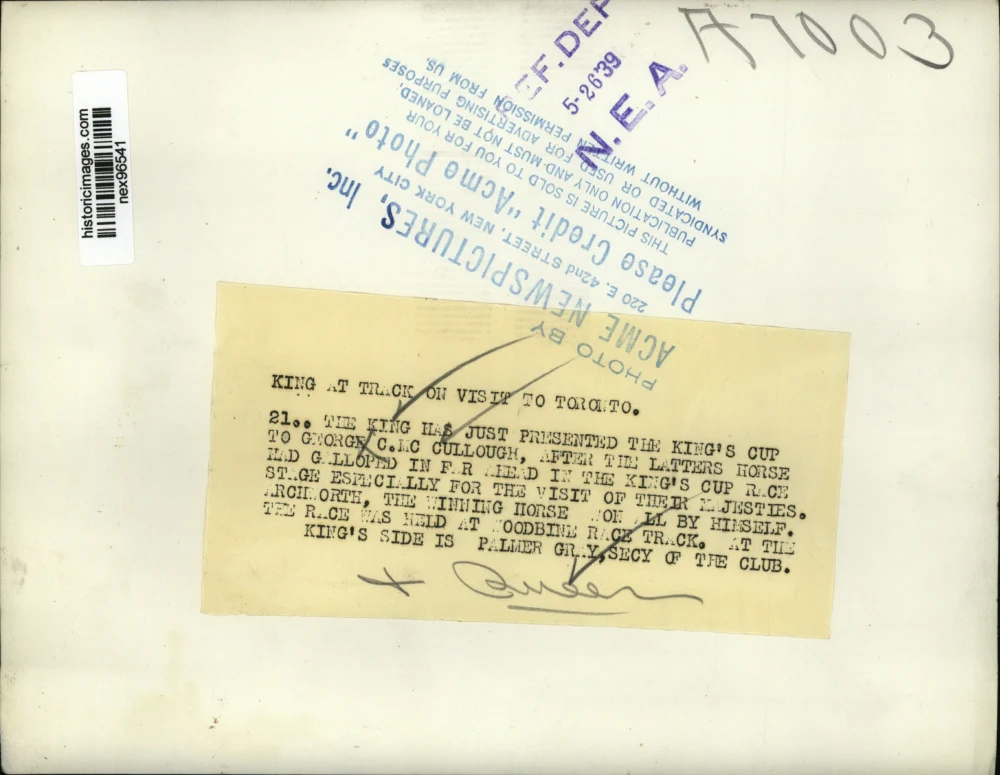 A7003
REF. DEPT
5-26'39
N.E.A.
historicimages.com
nex96541
PHOTO BY
ACME NEWSPICTURES, Inc.
220 E. 42nd STREET, NEW YORK CITY
Please Credit "Acme Photo"
THIS PICTURE IS SOLD TO YOU FOR YOUR
PUBLICATION ONLY AND MUST NOT BE LOANED,
SYNDICATED OR USED FOR ADVERTISING PURPOSES
WITHOUT WRITTEN PERMISSION FROM US.
KING AT TRACK ON VISIT TO TORONTO.
21.. THE KING HAS JUST PRESENTED THE KING'S CUP
TO GEORGE C.MC CULLOUGH, AFTER THE LATTERS HORSE
HAD GALLOPED IN FAR AHEAD IN THE KING'S CUP RACE
STAGE ESPECIALLY FOR THE VISIT OF THEIR MAJESTIES.
ARCHWORTH, THE WINNING HORSE WON ALL BY HIMSELF.
THE RACE WAS HELD AT WOODBINE RACE TRACK. AT THE
KING'S SIDE IS PALMER GRAY,SECY OF THE CLUB.
+ Queen